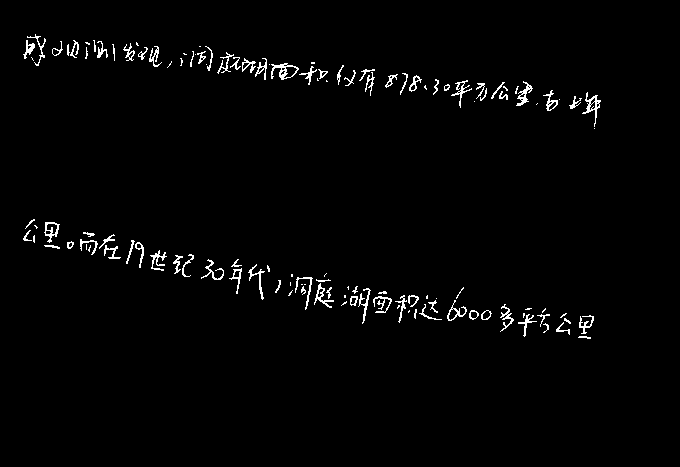 感观测发现,洞庭湖面积仅有878.30平方公里.去年
公里。而在19世纪30年代,洞庭湖面积达6000多平方公里